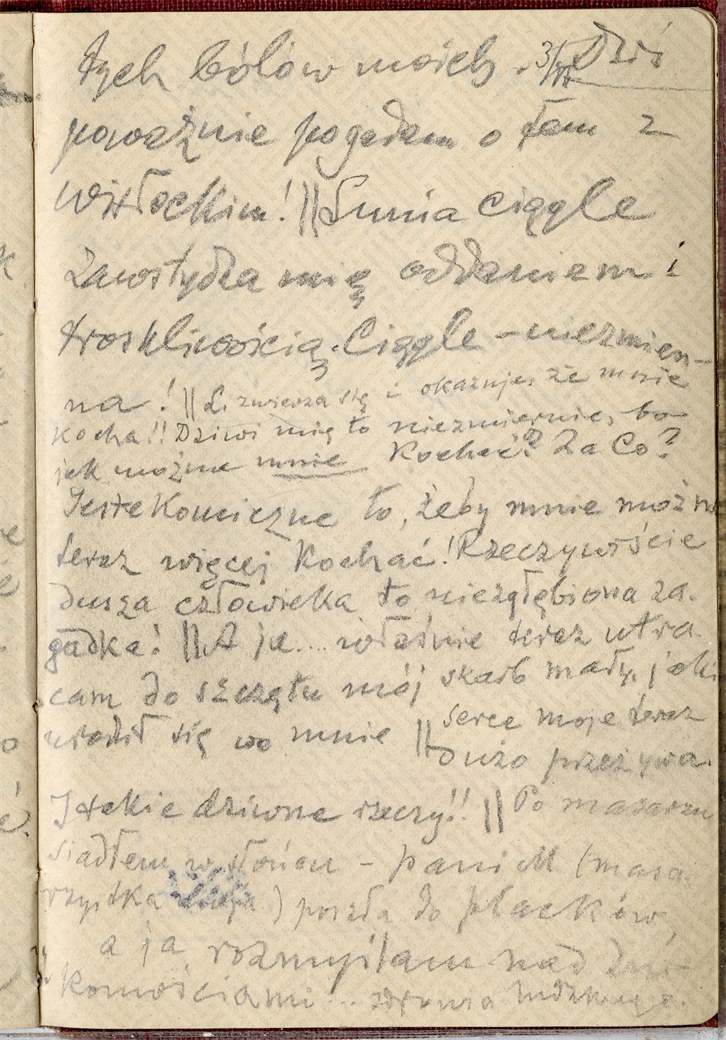 tych bólów moich. 3/VII Dziś
poważnie pogadam o tem z
! || Lunia ciągle
zawstydza mię oddaniem i
troskliwością. Ciągle – niezmien-
na! || L. zwierza się i okazuje, że mnie
kocha!! Dziwi mię to niezmiernie, bo
jak można mnie kochać? Za Co?
Jest komiczne to, żeby mnie można
teraz więcej kochać! Rzeczywiście
dusza człowieka to niezgłębiona za-
gadka! || A ja.... właśnie teraz utra-
cam do szczętu mój skarb mały, jaki
urodził się we mnie || serce moje teraz
dużo przeżywa.
I takie dziwne rzeczy!! || Po masażu
siadłem w słońcu – pani M (masa-
rzystka ) poszła do placków,
a ja rozmyślam nad
...